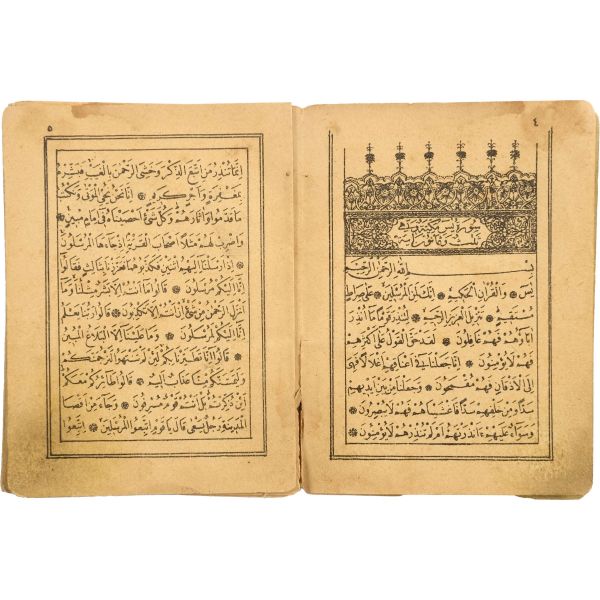 ٤
سورة يس مكية وهي
ثلث وثمانون آية
بِسْمِ اللّٰهِ الرَّحْمٰنِ الرَّحِيمِ
يس ❋ وَالْقُرْاٰنِ الْحَكِيمِ ❋ اِنَّكَ لَمِنَ الْمُرْسَلِينَ ❋ عَلٰى صِرَاطٍ
مُسْتَقِيمٍ ❋ تَنْزِيلَ الْعَزِيزِ الرَّحِيمِ ❋ لِتُنْذِرَ قَوْمًا مَا اُنْذِرَ
اٰبَاؤُهُمْ فَهُمْ غَافِلُونَ ❋ لَقَدْ حَقَّ الْقَوْلُ عَلٰى اَكْثَرِهِمْ
فَهُمْ لَا يُؤْمِنُونَ ❋ اِنَّا جَعَلْنَا فِى اَعْنَاقِهِمْ اَغْلَالًا فَهِىَ
اِلَى الْاَذْقَانِ فَهُمْ مُقْمَحُونَ ❋ وَجَعَلْنَا مِنْ بَيْنِ اَيْدِيهِمْ
سَدًّا وَمِنْ خَلْفِهِمْ سَدًّا فَاَغْشَيْنَاهُمْ فَهُمْ لَا يُبْصِرُونَ ❋
وَسَوَاءٌ عَلَيْهِمْ ءَاَنْذَرْتَهُمْ اَمْ لَمْ تُنْذِرْهُمْ لَا يُؤْمِنُونَ ❋
٥
اِنَّمَا تُنْذِرُ مَنِ اتَّبَعَ الذِّكْرَ وَخَشِىَ الرَّحْمٰنَ بِالْغَيْبِ فَبَشِّرْهُ
بِمَغْفِرَةٍ وَاَجْرٍ كَرِيمٍ ❋ اِنَّا نَحْنُ نُحْيِى الْمَوْتٰى وَنَكْتُبُ
مَا قَدَّمُوا وَاٰثَارَهُمْ وَكُلَّ شَىْءٍ اَحْصَيْنَاهُ فِى اِمَامٍ مُبِينٍ ❋
وَاضْرِبْ لَهُمْ مَثَلًا اَصْحَابَ الْقَرْيَةِ اِذْ جَاءَهَا الْمُرْسَلُونَ
❋ اِذْ اَرْسَلْنَا اِلَيْهِمُ اثْنَيْنِ فَكَذَّبُوهُمَا فَعَزَّزْنَا بِثَالِثٍ فَقَالُوا
اِنَّا اِلَيْكُمْ مُرْسَلُونَ ❋ قَالُوا مَا اَنْتُمْ اِلَّا بَشَرٌ مِثْلُنَا وَمَا
اَنْزَلَ الرَّحْمٰنُ مِنْ شَىْءٍ اِنْ اَنْتُمْ اِلَّا تَكْذِبُونَ ❋ قَالُوا رَبُّنَا يَعْلَمُ
اِنَّا اِلَيْكُمْ لَمُرْسَلُونَ ❋ وَمَا عَلَيْنَا اِلَّا الْبَلَاغُ الْمُبِينُ
❋ قَالُوا اِنَّا تَطَيَّرْنَا بِكُمْ لَئِنْ لَمْ تَنْتَهُوا لَنَرْجُمَنَّكُمْ
وَلَيَمَسَّنَّكُمْ مِنَّا عَذَابٌ اَلِيمٌ ❋ قَالُوا طَائِرُكُمْ مَعَكُمْ
اَئِنْ ذُكِّرْتُمْ بَلْ اَنْتُمْ قَوْمٌ مُسْرِفُونَ ❋ وَجَاءَ مِنْ اَقْصَا
الْمَدِينَةِ رَجُلٌ يَسْعٰى قَالَ يَا قَوْمِ اتَّبِعُوا الْمُرْسَلِينَ ❋ اِتَّبِعُوا